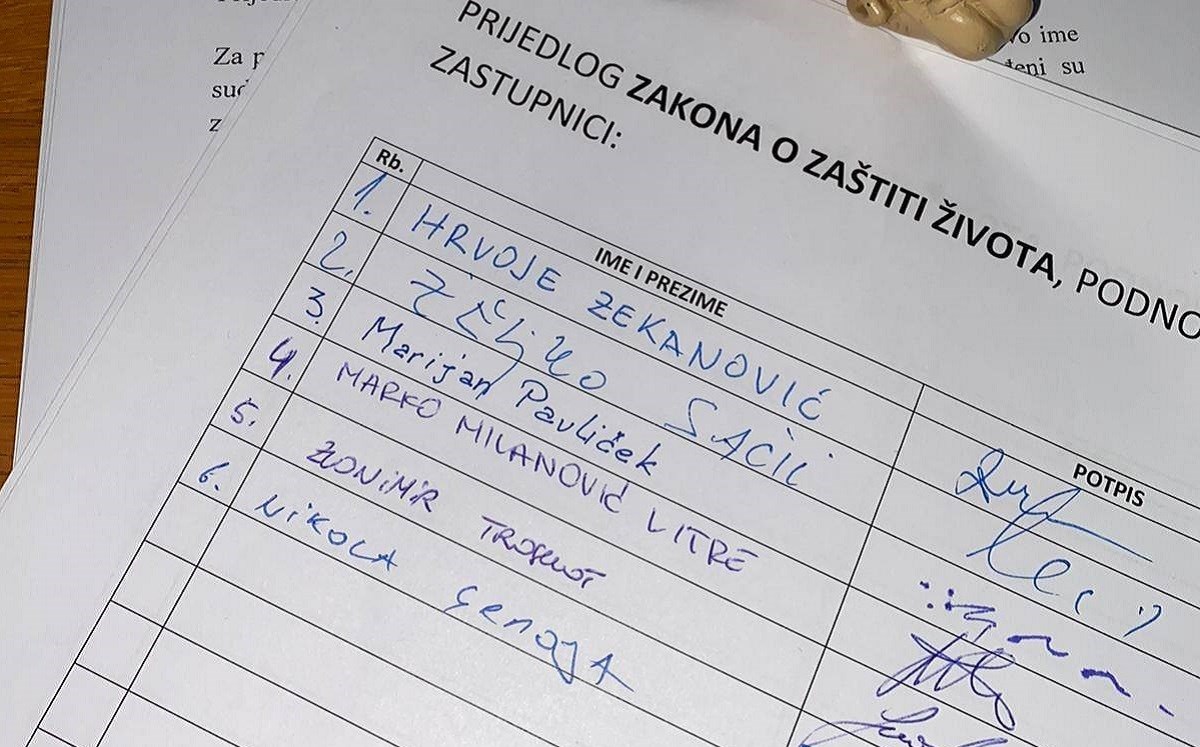 Za p
suć
z
vo ime
teni su
PRIJEDLOG ZAKONA O ZAŠTITI ŽIVOTA, PODNO
ZASTUPNICI:
Rb. IME I PREZIME POTPIS
1. HRVOJE ZEKANOVIĆ
2. ŽELJKO SAČIĆ
3. Marijan Pavliček
4. MARKO MILANOVIĆ LITRE
5. ZVONIMIR TROSKOT
6. NIKOLA